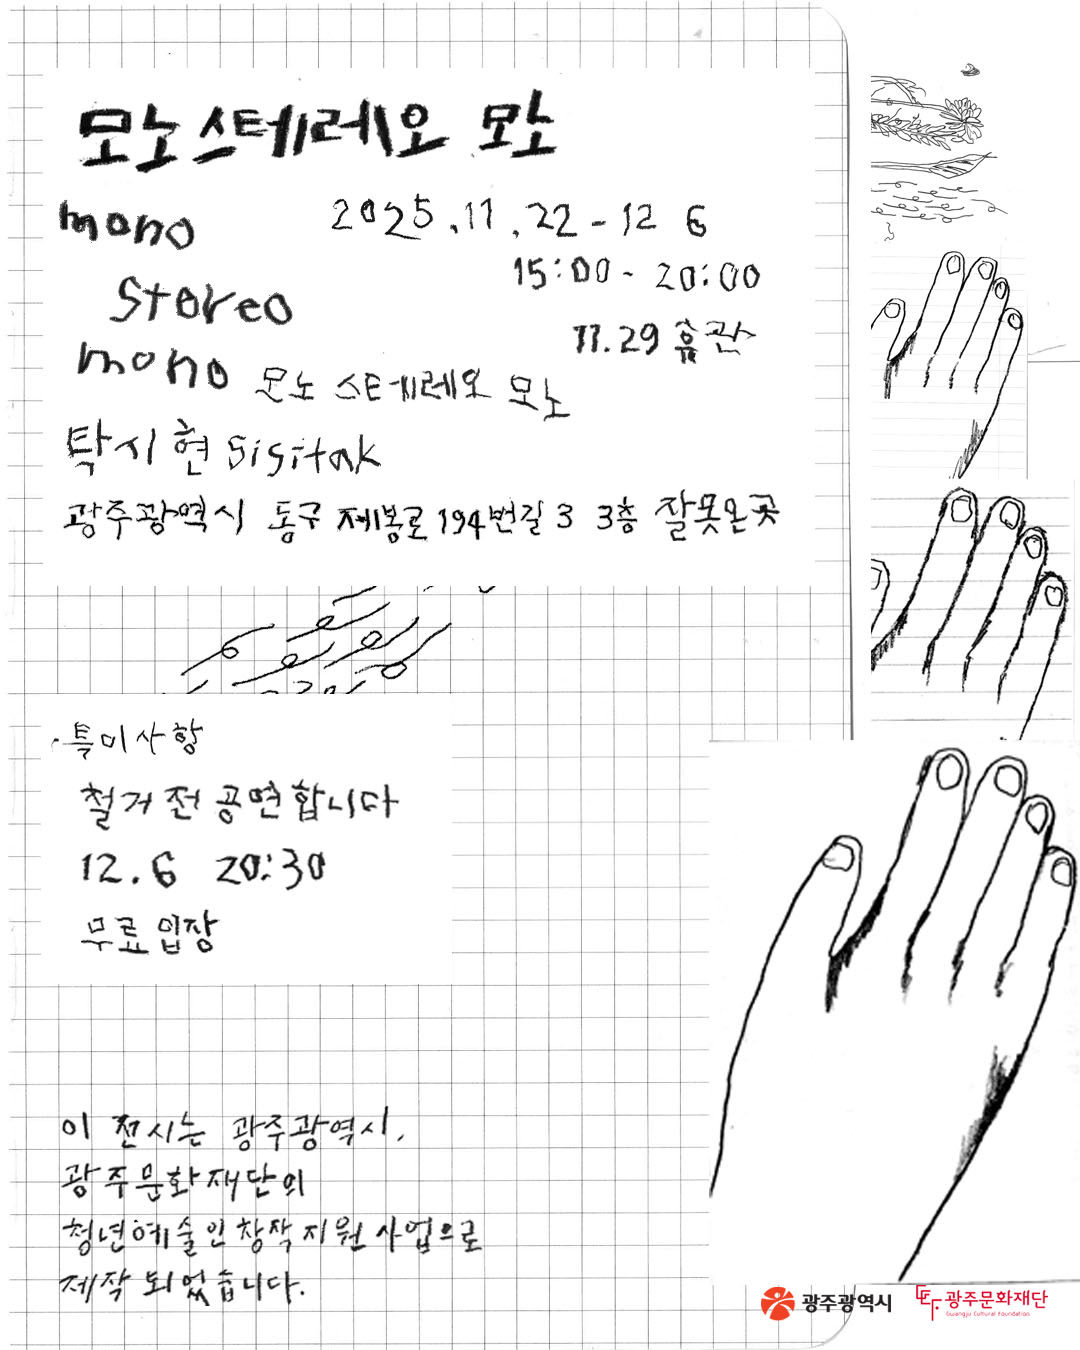 모노 스테레오 모노
mono
2025.11.22-12 6
15:00-20:00
Stereo
11.29 휴관
mono 모노 스테레오 모노
탁시현 Sisitak
광주광역시 동구 제봉로 194번길 3 3층 잘못온곳
·특이사항
철거전 공연합니다
12.6 20:30
무료입장
이 전시는 광주광역시,
광주문화재단의
청년예술인창작지원사업으로
제작 되었습니다.
광주광역시
광주문화재단
Gwangju Cultural Foundation